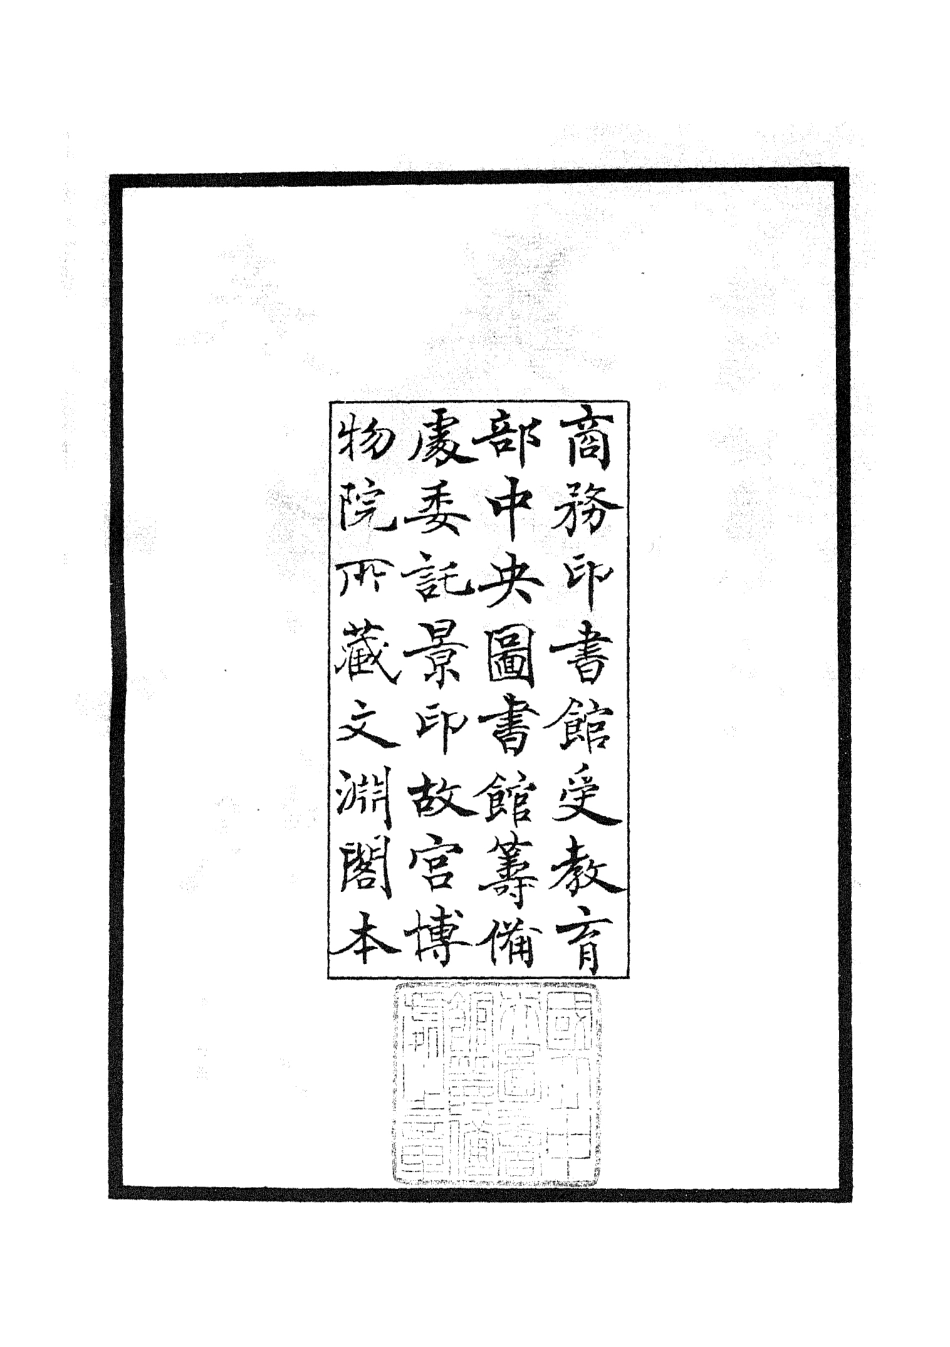 商務印書館受教育
部中央圖書館籌備
處委託景印故宮博
物院所藏文淵閣本
國立中
央圖書
館籌備